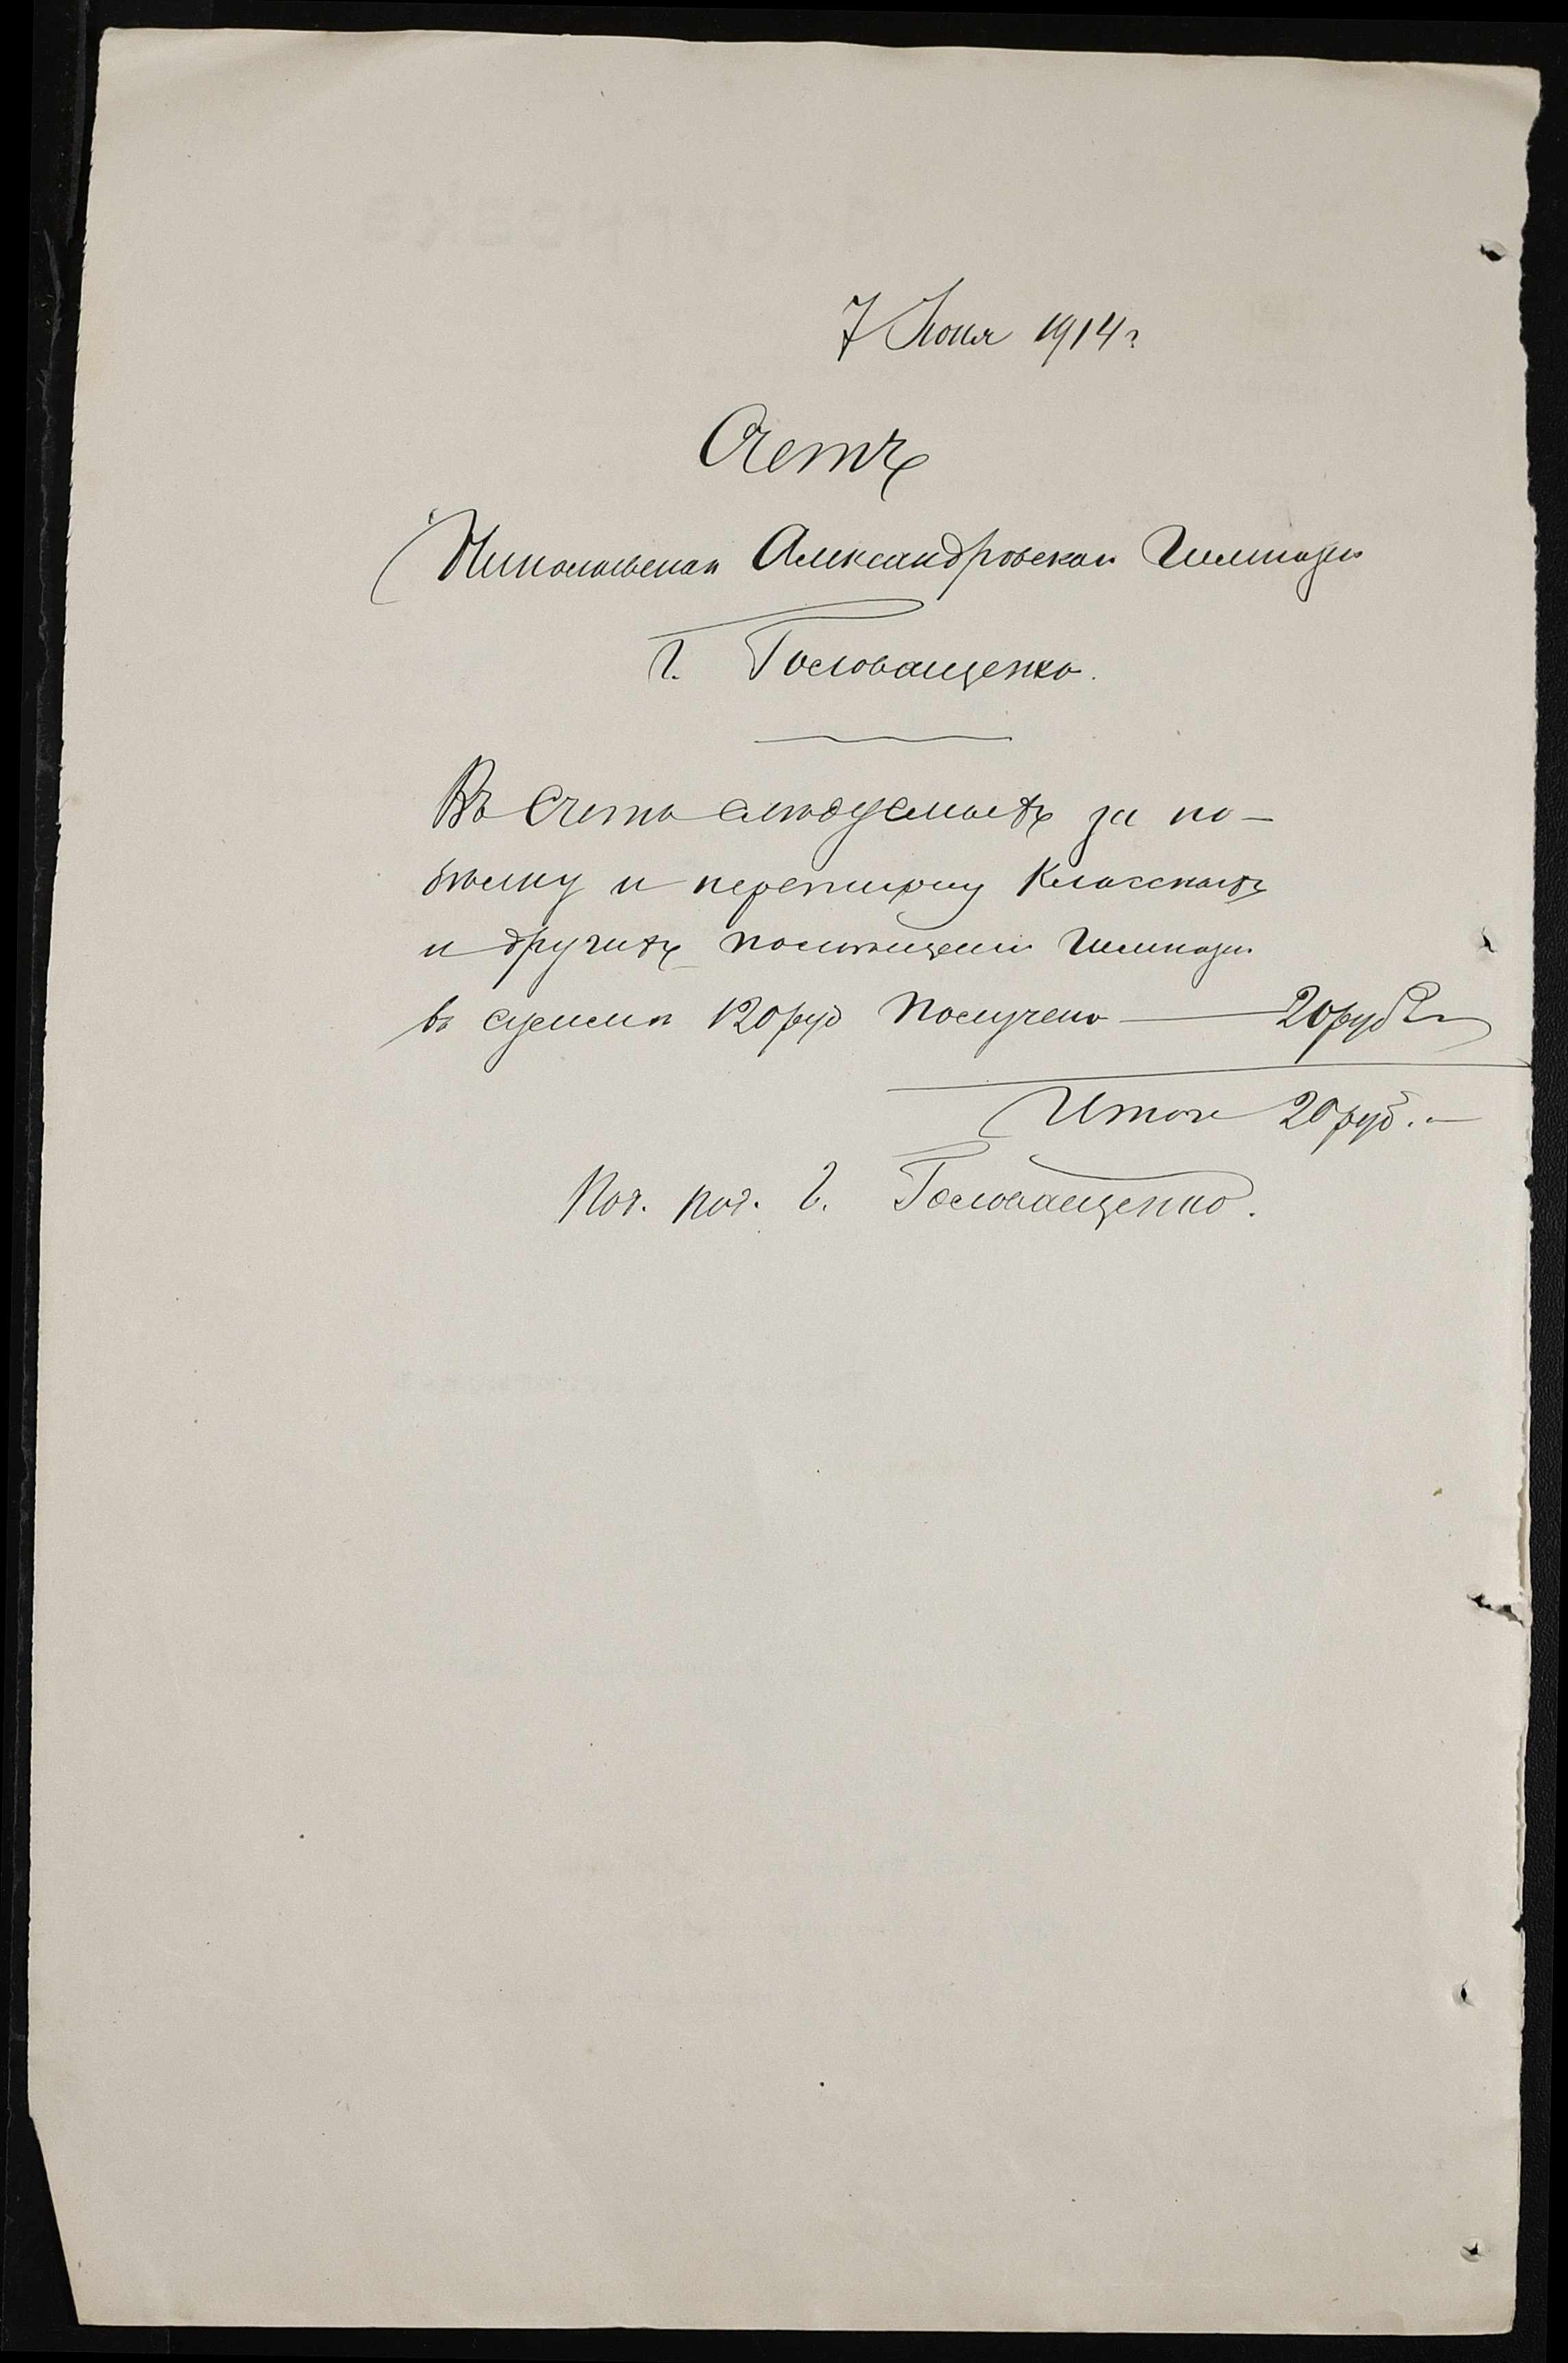 7 Июня 1914 г
Счетъ
Николаевская Александровская Гимназия
Г. Головащенко.
Въ Счетъ слѣдуемыхъ за по-
бѣлку и перетирку Классныхъ
и другихъ помѣщеній Гимназіи
въ суммѣ 120 руб Получено — 20 руб
Итого 20 руб. —
Г. Головащенко.